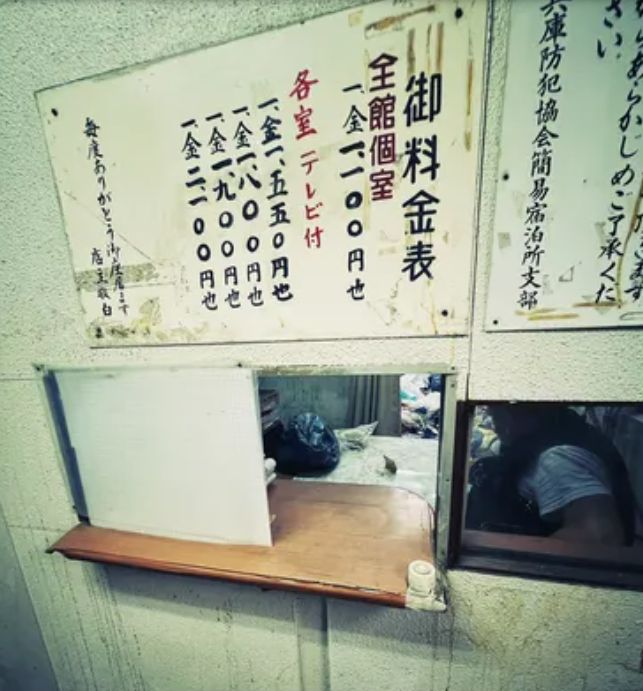 らあらかしめご了承くだ
さい
兵庫防犯協会簡易宿泊所支部
御料金表
全館個室
一、金一、一〇〇円也
各室 テレビ付
一、金一、五五〇円也
一、金一、八〇〇円也
一、金一、九〇〇円也
一、金二、一〇〇円也
毎度ありがとう御座居ます
店主敬白